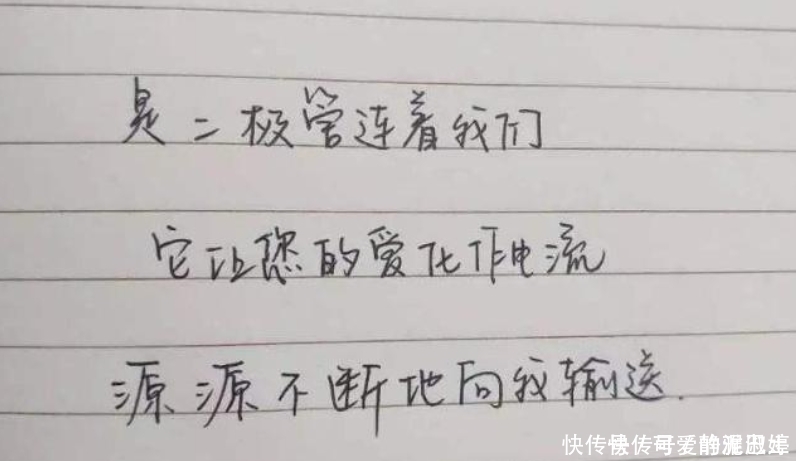 是二极管连着我们
它让您的爱化作电流
源源不断地向我输送.
快传号